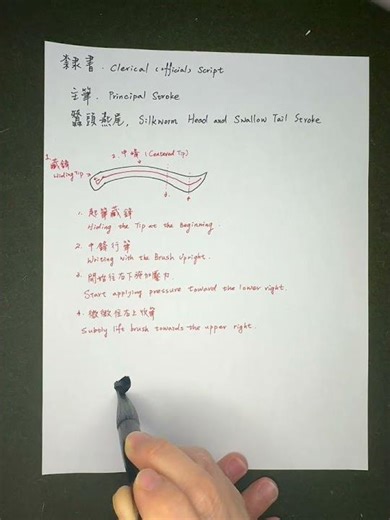 隸書. Clerical (official) Script
主筆. Principal Stroke
蠶頭燕尾, Silkworm Head and Swallow Tail Stroke
1. 藏鋒
Hiding Tip
2. 中鋒 (Centered Tip)
3.
4.
1. 起筆藏鋒
Hiding the Tip at the Beginning.
2. 中鋒行筆
Writing with the Brush Upright.
3. 開始往右下施加壓力
Start applying pressure toward the lower right.
4. 微微往右上收筆
Subtly life brush towards the upper right.